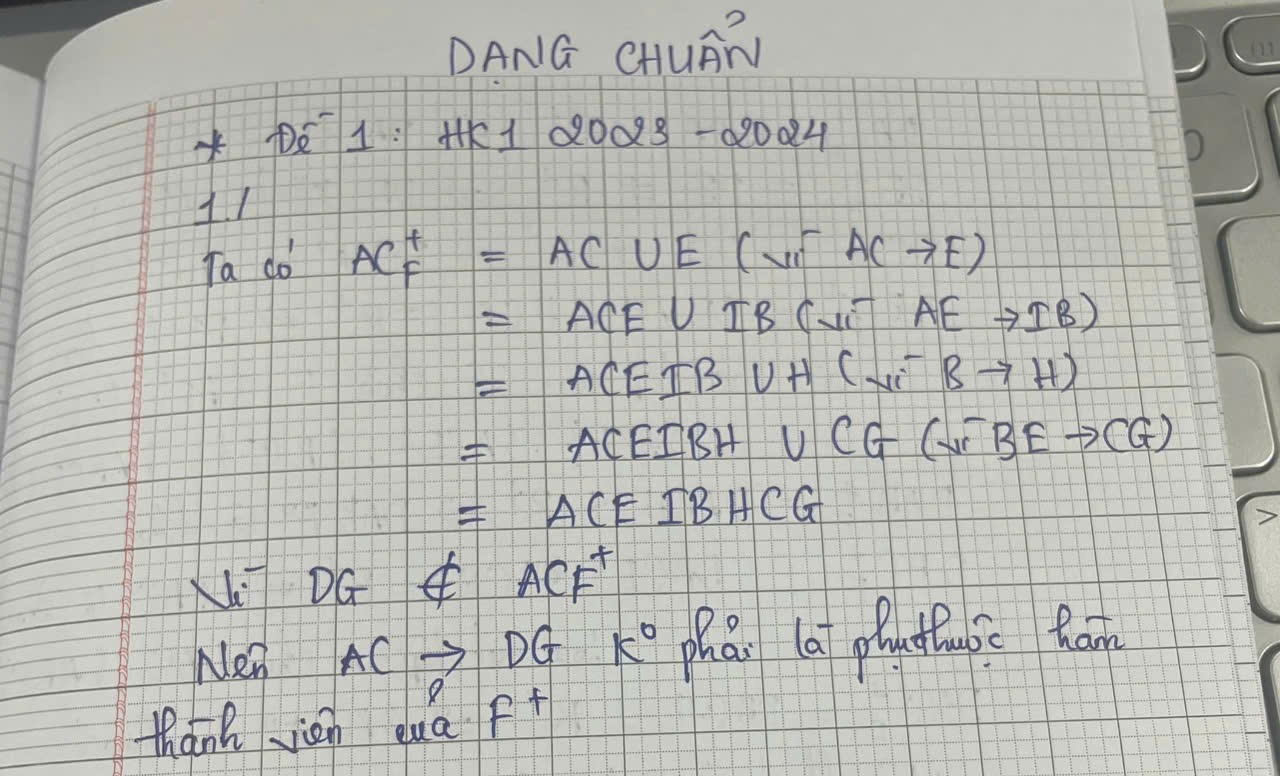 DẠNG CHUẨN
* Đề 1: HK1 2023 - 2024
1./
Ta có AC⁺F = AC ∪ E (vì AC → E)
= ACE ∪ IB (vì AE → IB)
= ACEIB ∪ H (vì B → H)
= ACEIBH ∪ CG (vì BE → CG)
= ACEIBHCG
Vì DG ⊄ ACF⁺
Nên AC → DG K° phải là phụ thuộc hàm
thành viên của F⁺